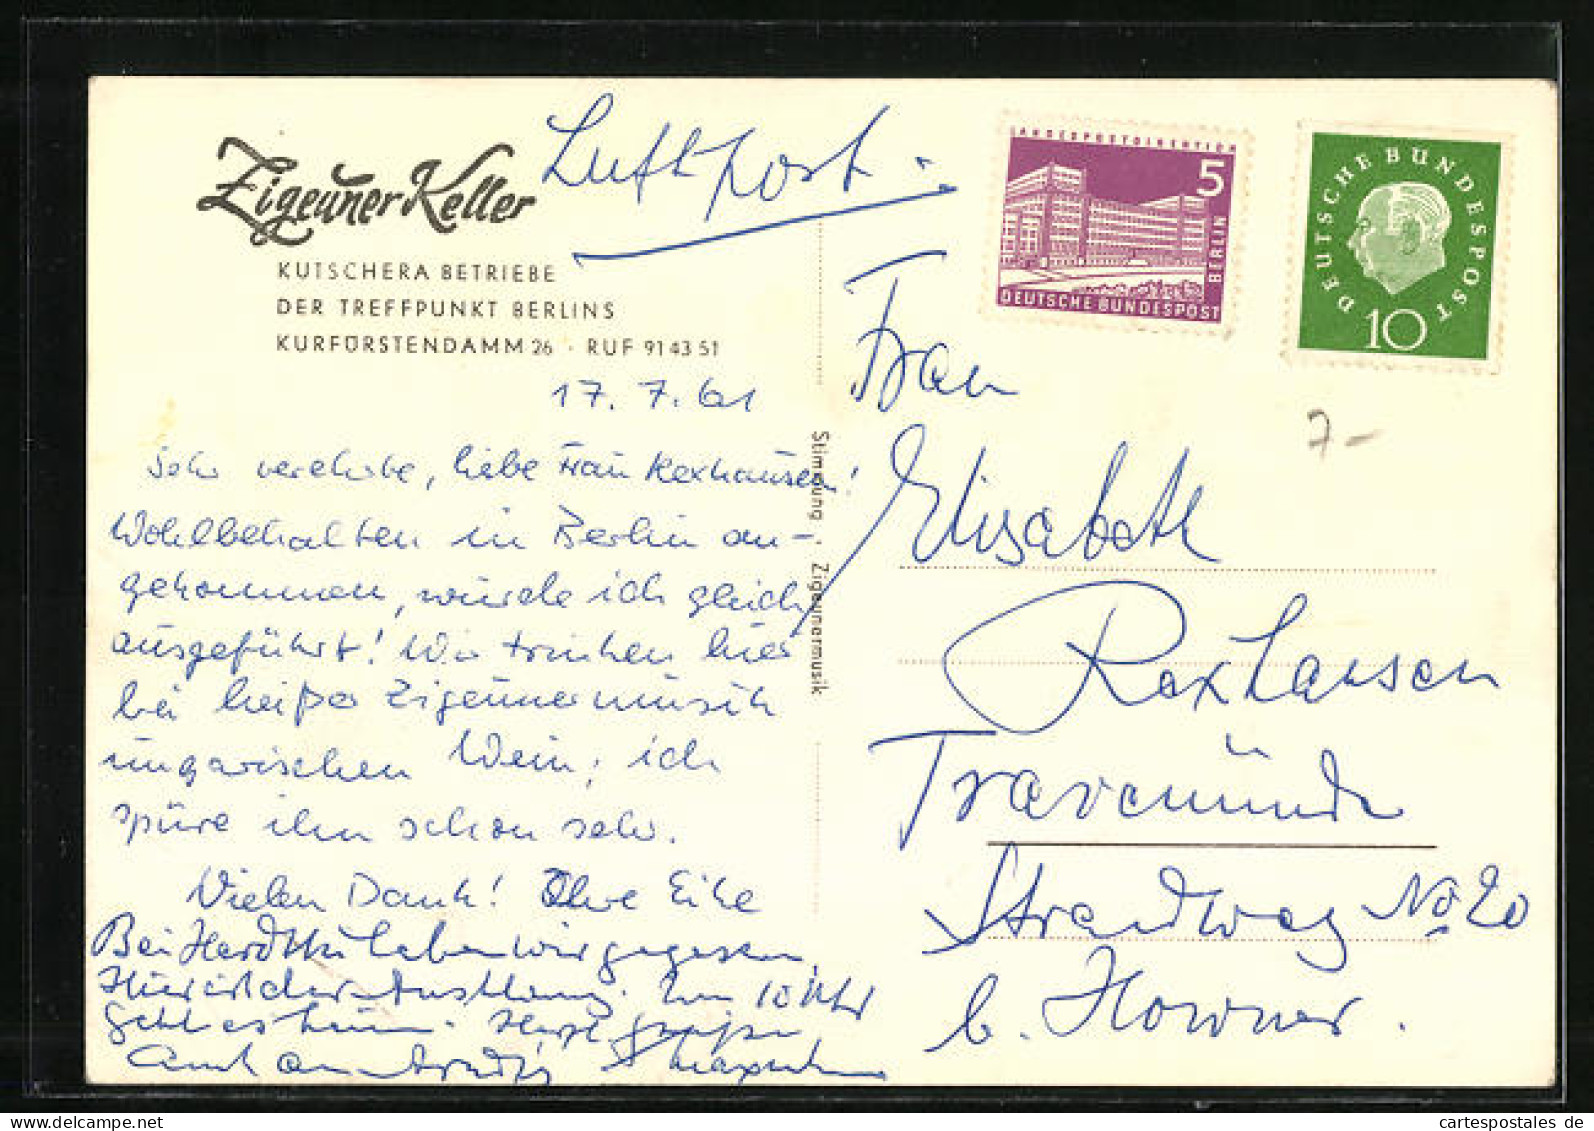 Zigeuner Keller
KUTSCHERA BETRIEBE
DER TREFFPUNKT BERLINS
KURFÜRSTENDAMM 26 · RUF 91 43 51
Luftpost
LANDESPOSTDIREKTION
5
BERLIN
DEUTSCHE BUNDESPOST
DEUTSCHE BUNDESPOST
10
7-
17. 7. 61
Sehr verehrte, liebe Frau Rexhausen!
Wohlbehalten in Berlin an-
gekommen, wurde ich gleich
ausgeführt! Wir trinken hier
bei heißer Zigeunermusik
ungarischen Wein; ich
spüre ihn schon sehr.
Vielen Dank! Ihre Eike
Bei haben wir gegessen,
Hier ist der Um 10 Uhr
geht es heim.
Auch an
Stimmung · Zigeunermusik
Frau
Elisabeth
Rexhausen
Travemünde
Strandweg No 20
b.
cartespostales de